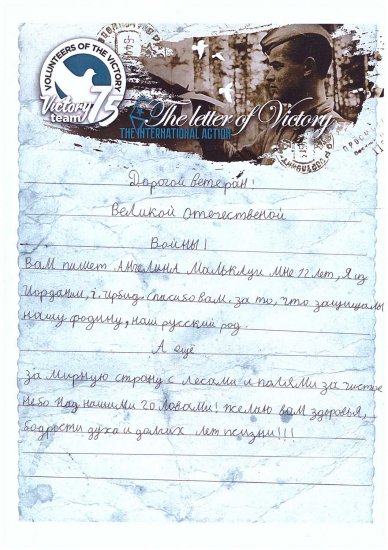 VOLUNTEERS OF THE VICTORY
Victory
team 75
The letter of Victory
THE INTERNATIONAL ACTION
Дорогой ветеран!
Великой Отечественой
Войны!
Вам пишет Ангелина мне 12 лет, Я из
Иордании, г. Ирбид. Спасибо вам. за то, что защищали
нашу родину, наш русский род.
А ещё
за мирную страну с лесами и палями за чистое
небо над нашими головами! Желаю вам здоровья,
бодрости духа и долгих лет жизни!!!